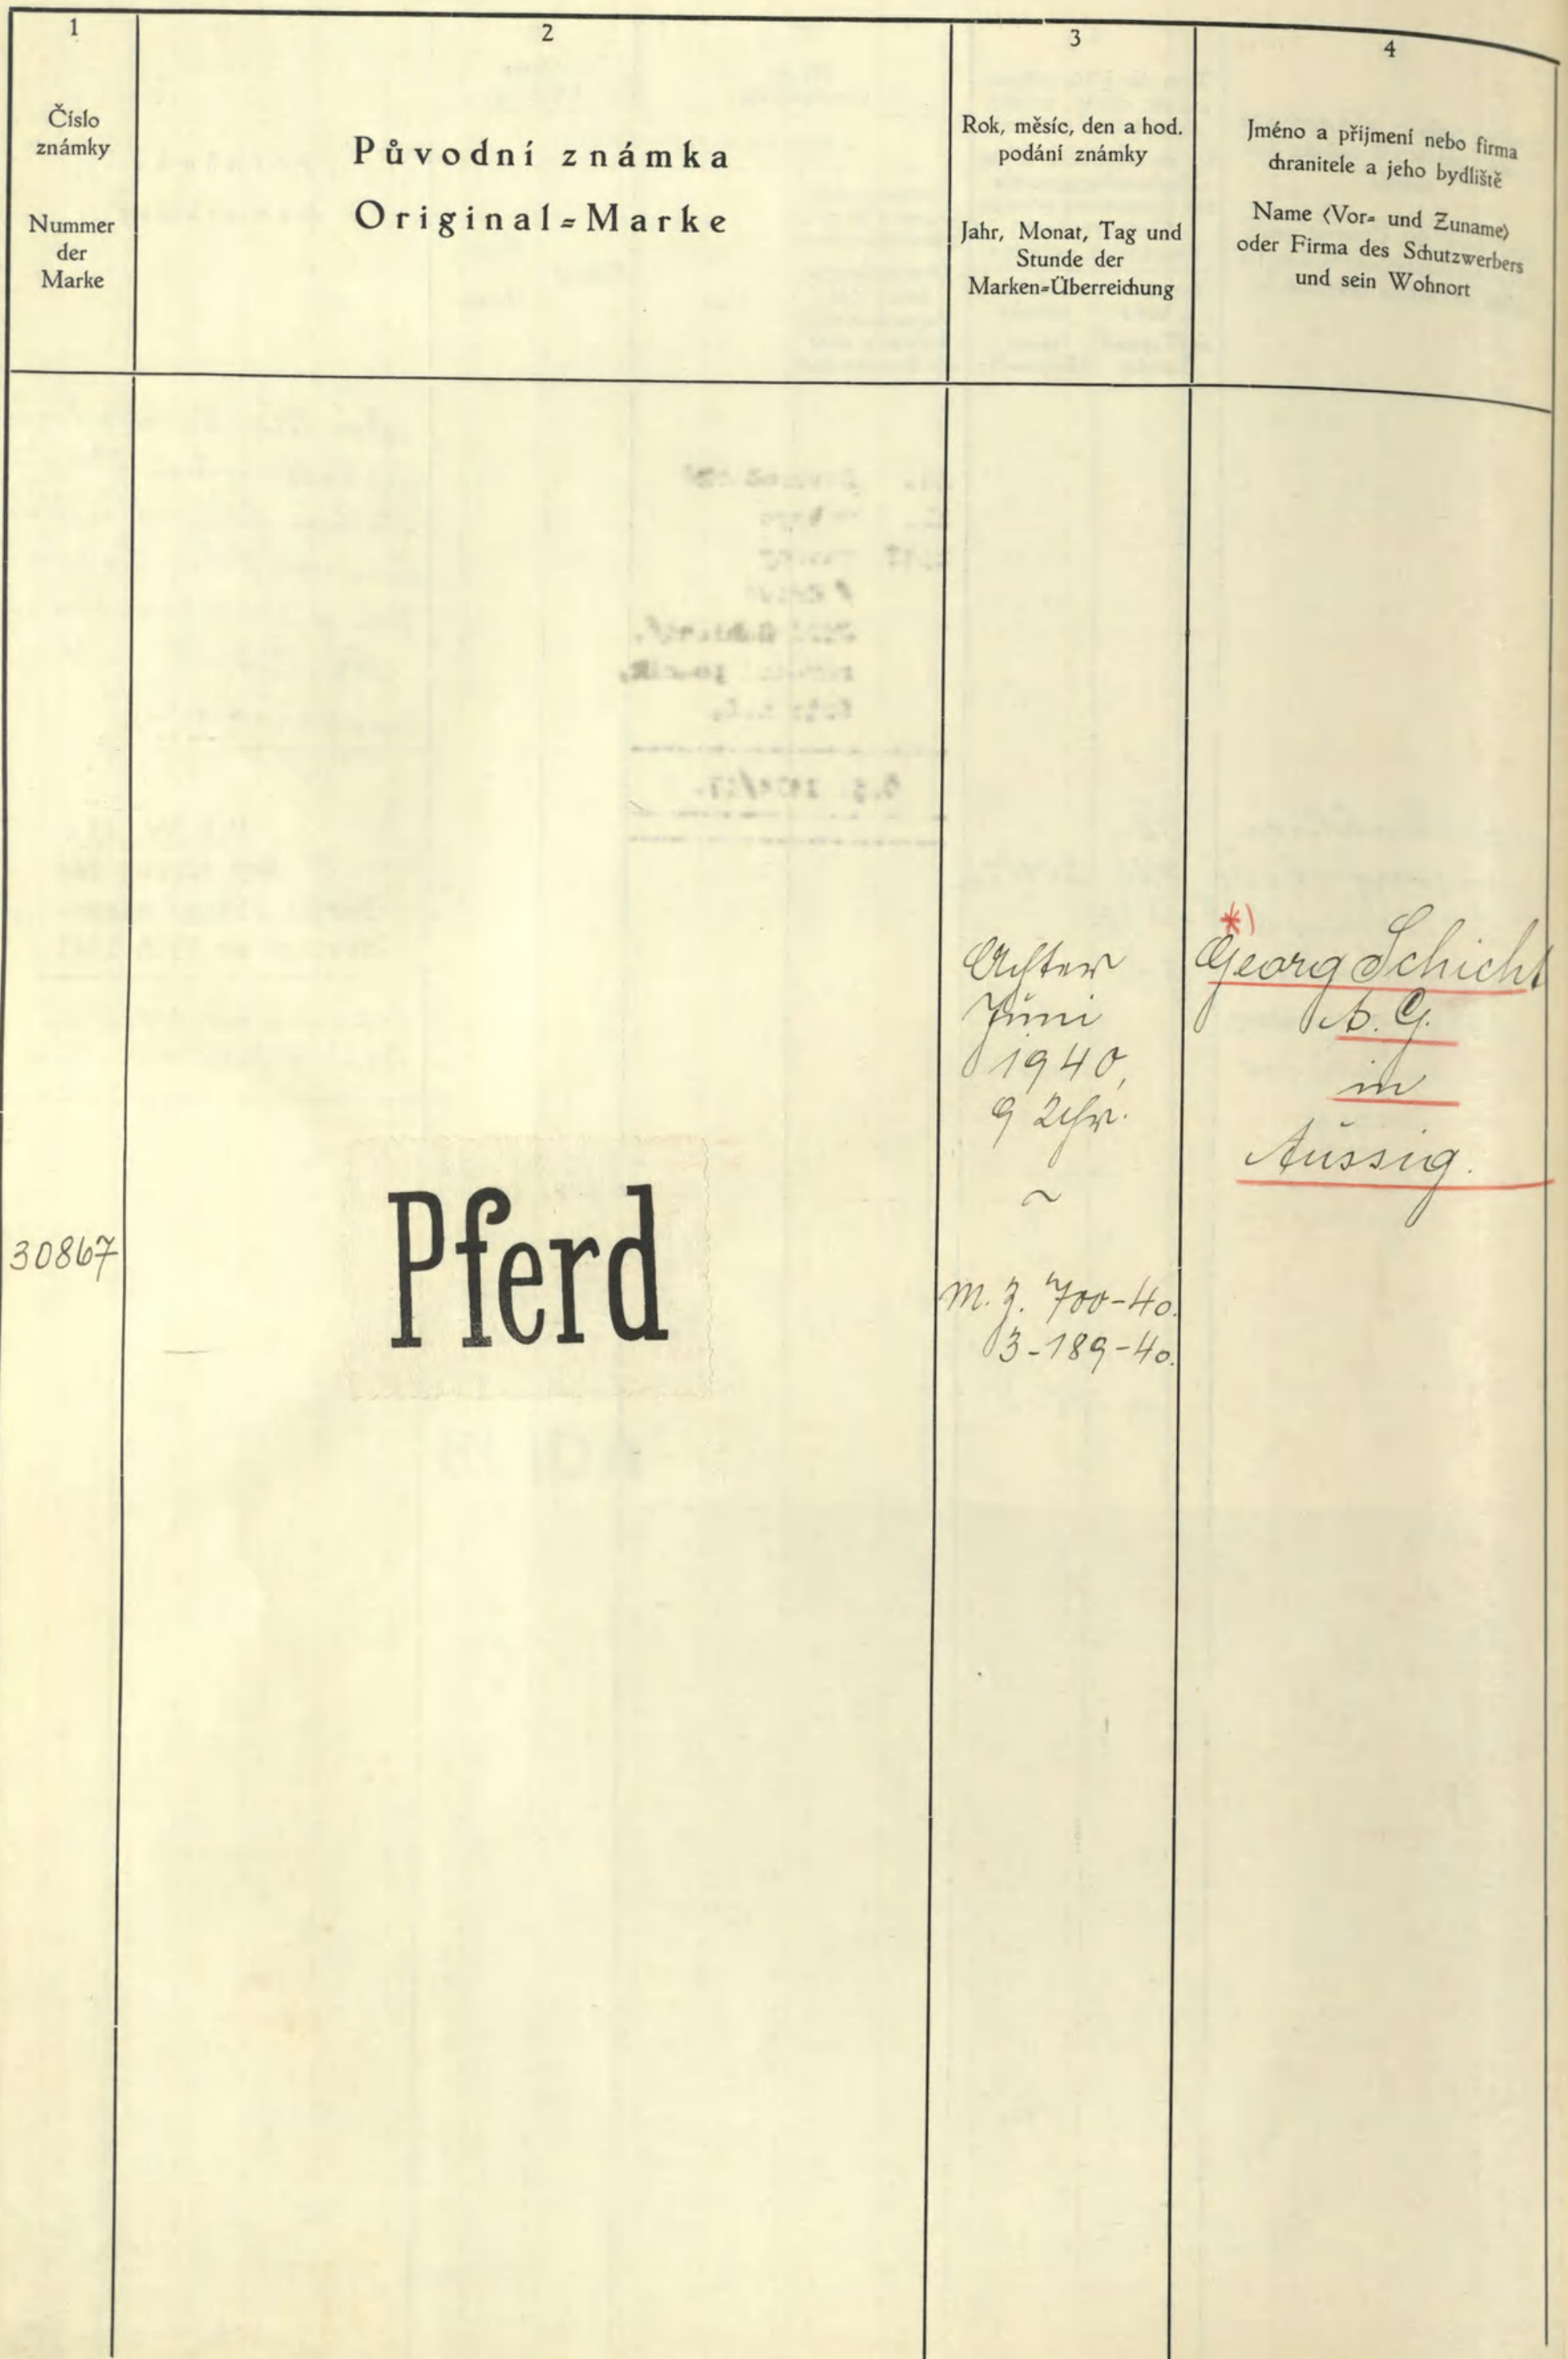 1
Číslo
známky
Nummer
der
Marke
2
Původní známka
Original=Marke
3
Rok, měsíc, den a hod.
podání známky
Jahr, Monat, Tag und
Stunde der
Marken=Überreichung
4
Jméno a příjmení nebo firma
chranitele a jeho bydliště
Name (Vor= und Zuname)
oder Firma des Schutzwerbers
und sein Wohnort
30867
Pferd
Achter
Juni
1940,
9 Uhr.
~
M. Z. 700-40.
3-189-40.
*)
Georg Schicht
A. G.
in
Aussig.